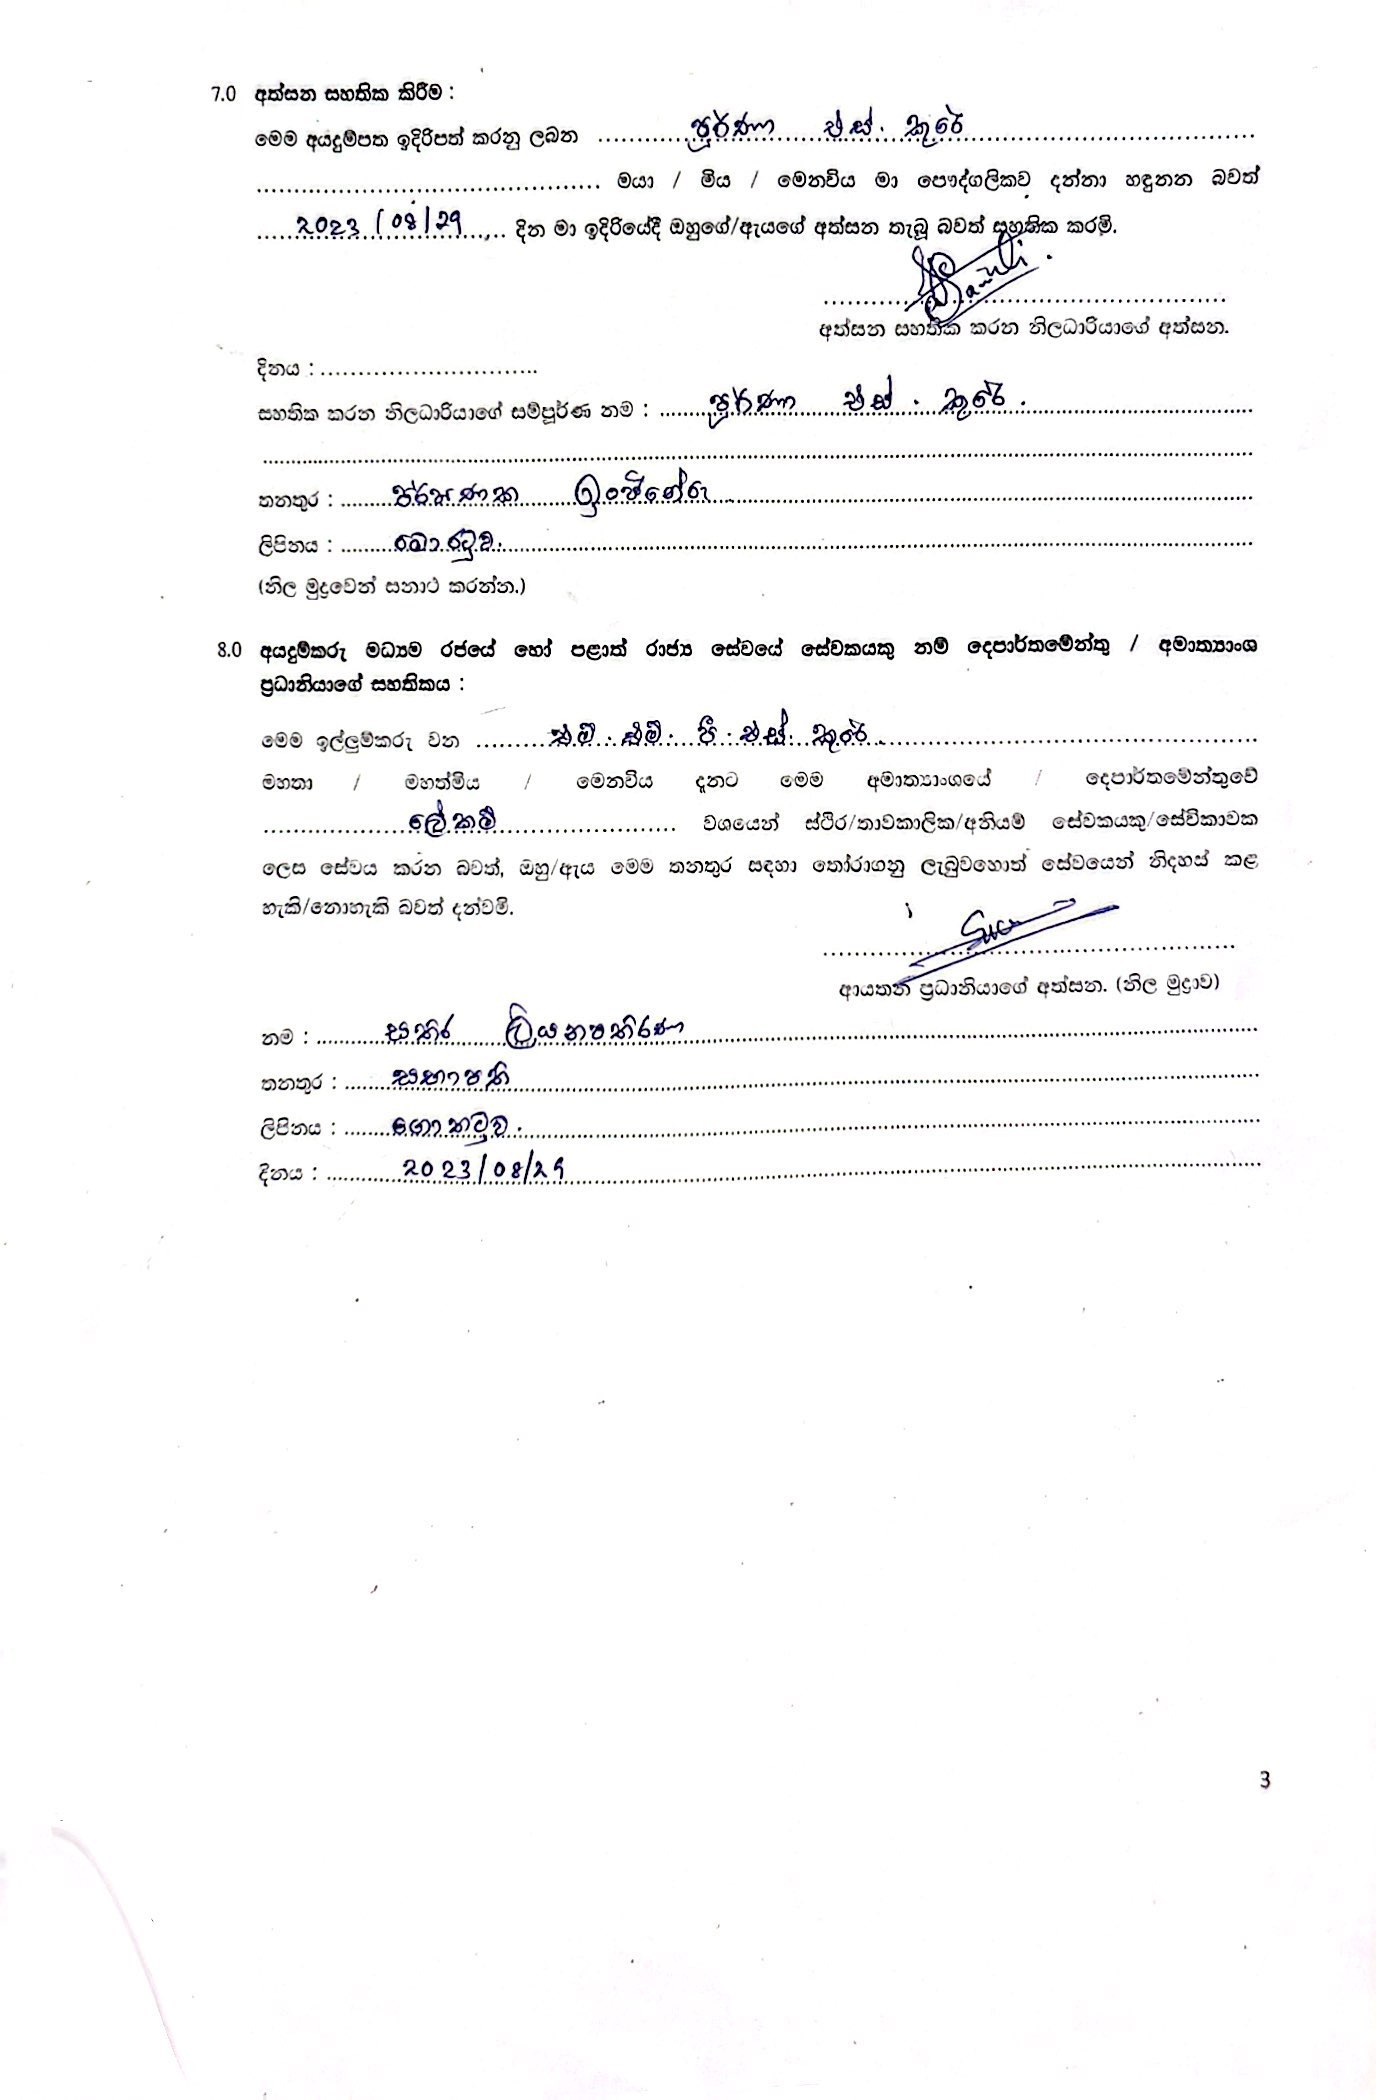 7.0 අත්සන සහතික කිරීම :
මෙම අයදුම්පත ඉදිරිපත් කරනු ලබන ........ පූර්ණා එස්. කුරේ ........
........ මයා / මිය / මෙනවිය මා පෞද්ගලිකව දන්නා හඳුනන බවත්
2023/08/29 දින මා ඉදිරියේදී ඔහුගේ/ඇයගේ අත්සන තැබූ බවත් සහතික කරමි.
අත්සන සහතික කරන නිලධාරියාගේ අත්සන.
දිනය : ........
සහතික කරන නිලධාරියාගේ සම්පූර්ණ නම : පූර්ණා එස්. කුරේ.
තනතුර : ඉංජිනේරු
ලිපිනය : මොරටුව.
(නිල මුද්‍රාවෙන් සනාථ කරන්න.)
8.0 අයදුම්කරු මධ්‍යම රජයේ හෝ පළාත් රාජ්‍ය සේවයේ සේවකයකු නම් දෙපාර්තමේන්තු / අමාත්‍යාංශ
ප්‍රධානියාගේ සහතිකය :
මෙම ඉල්ලුම්කරු වන එම්. එම්. පී. එස්. කුරේ.
මහතා / මහත්මිය / මෙනවිය දැනට මෙම අමාත්‍යාංශයේ / දෙපාර්තමේන්තුවේ
ලේකම් වශයෙන් ස්ථිර/තාවකාලික/අනියම් සේවකයකු/සේවිකාවක
ලෙස සේවය කරන බවත්, ඔහු/ඇය මෙම තනතුර සඳහා තෝරාගනු ලැබුවහොත් සේවයෙන් නිදහස් කළ
හැකි/නොහැකි බවත් දන්වමි.
ආයතන ප්‍රධානියාගේ අත්සන. (නිල මුද්‍රාව)
නම : ලියනපතිරණ
තනතුර : සභාපති
ලිපිනය : ගොතටුව.
දිනය : 2023/08/29
3